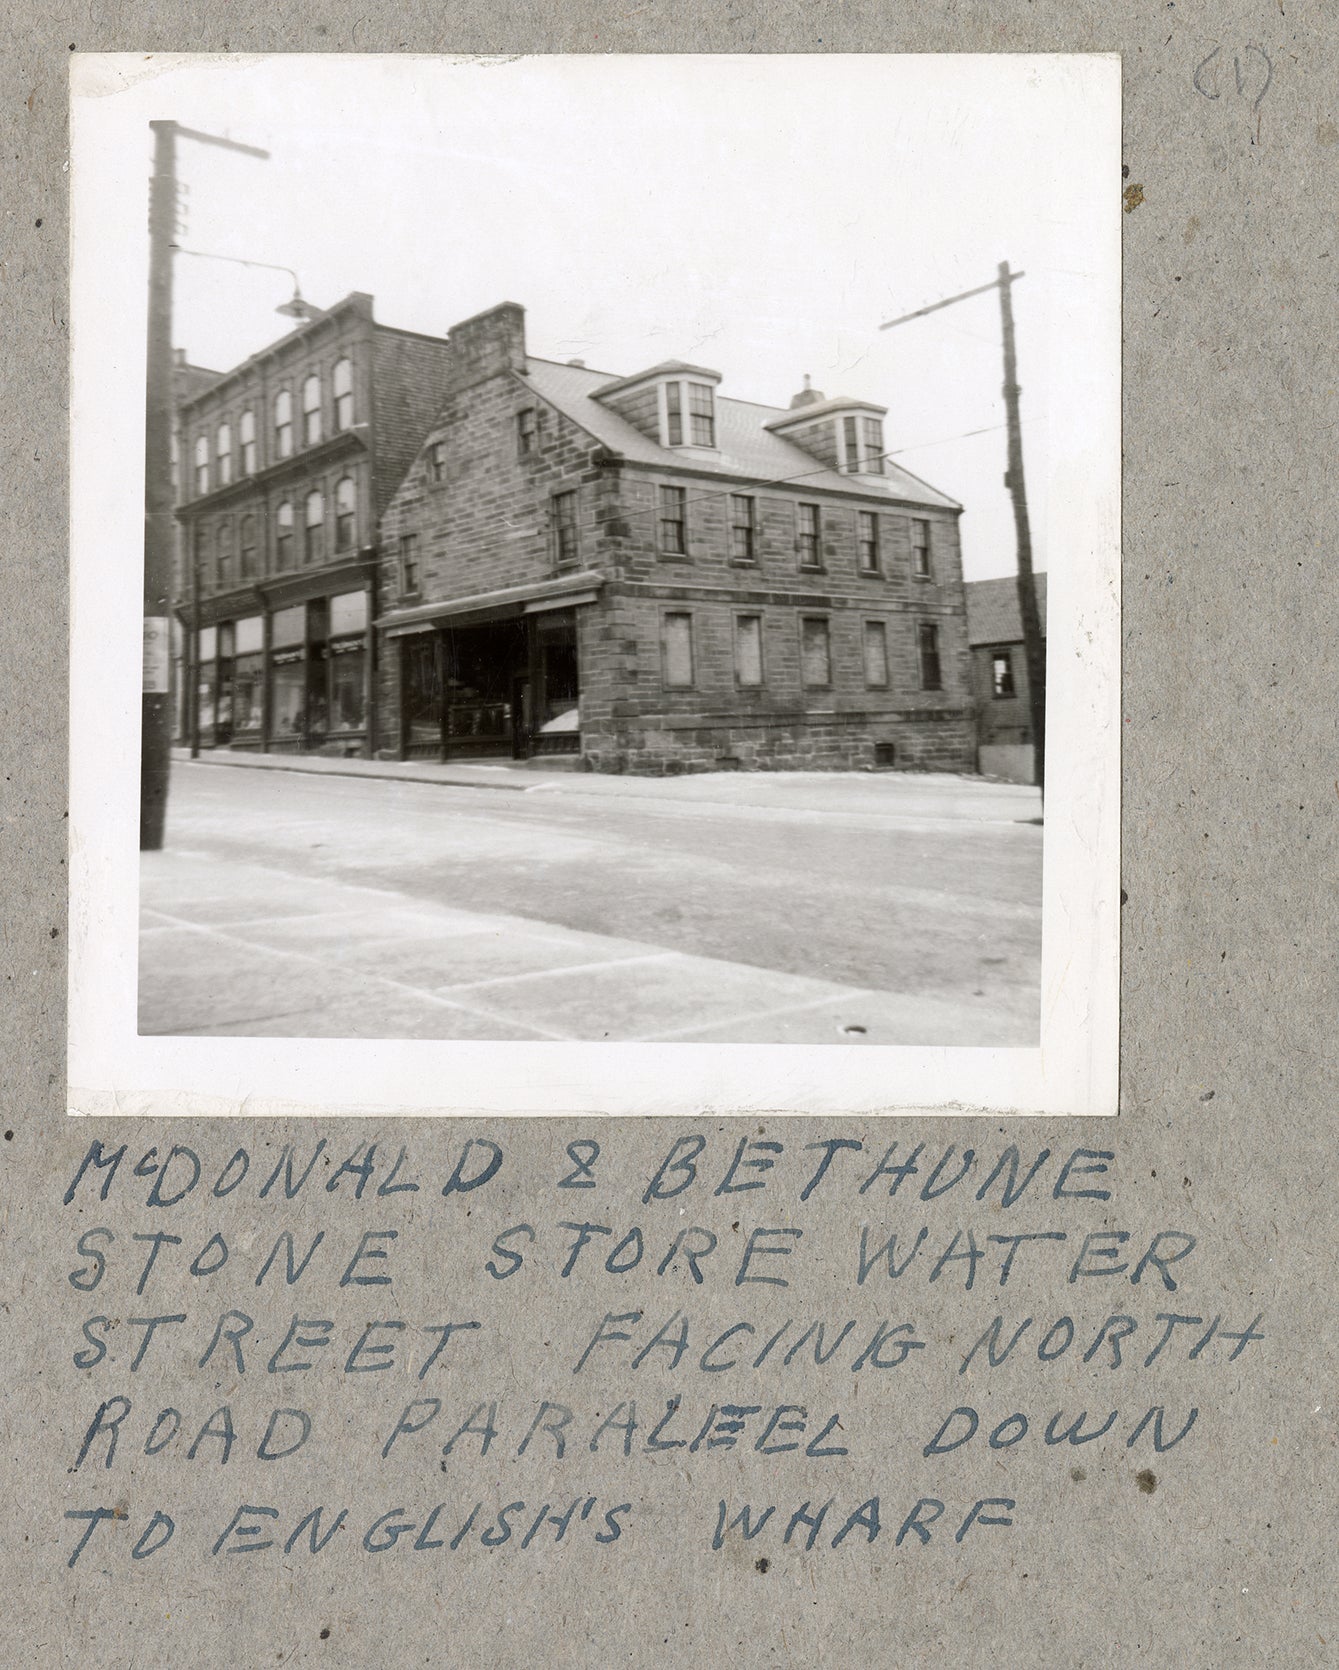 (1)
McDONALD & BETHUNE
STONE STORE WATER
STREET FACING NORTH
ROAD PARALEEL DOWN
TO ENGLISH'S WHARF